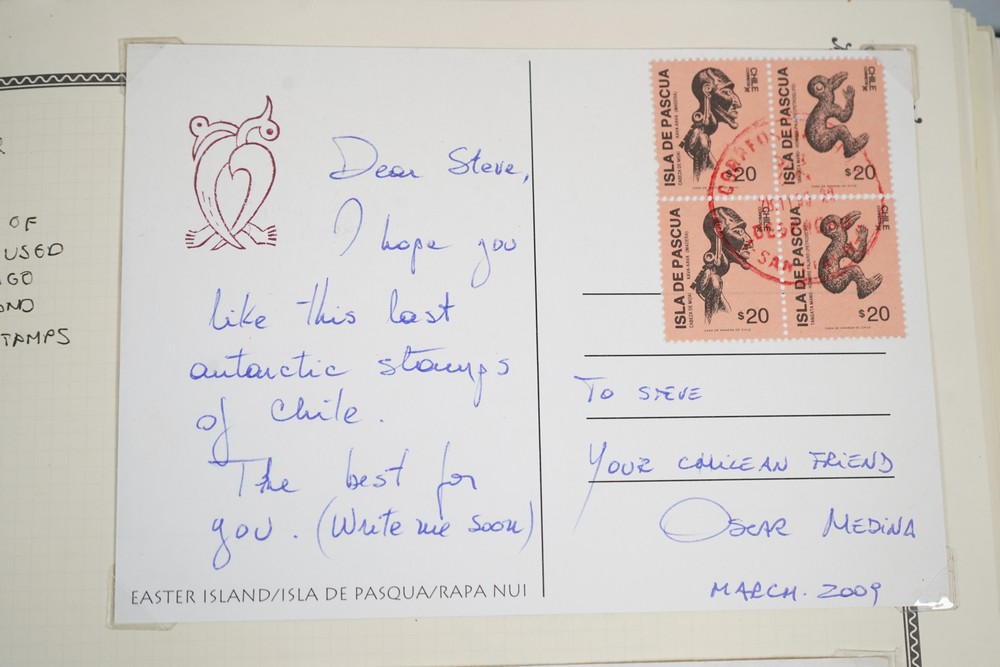 OF
USED
TAMPS
Dear Steve,
I hope you
like this last
antarctic stamps
of Chile.
The best for
you. (Write me soon)
EASTER ISLAND/ISLA DE PASQUA/RAPA NUI
ISLA DE PASCUA
CHILE
CORREOS
$20
ISLA DE PASCUA
CHILE
CORREOS
$20
ISLA DE PASCUA
CHILE
$20
ISLA DE PASCUA
CHILE
$20
CORREOS
TO STEVE
YOUR CHILEAN FRIEND
OSCAR MEDINA
MARCH. 2009